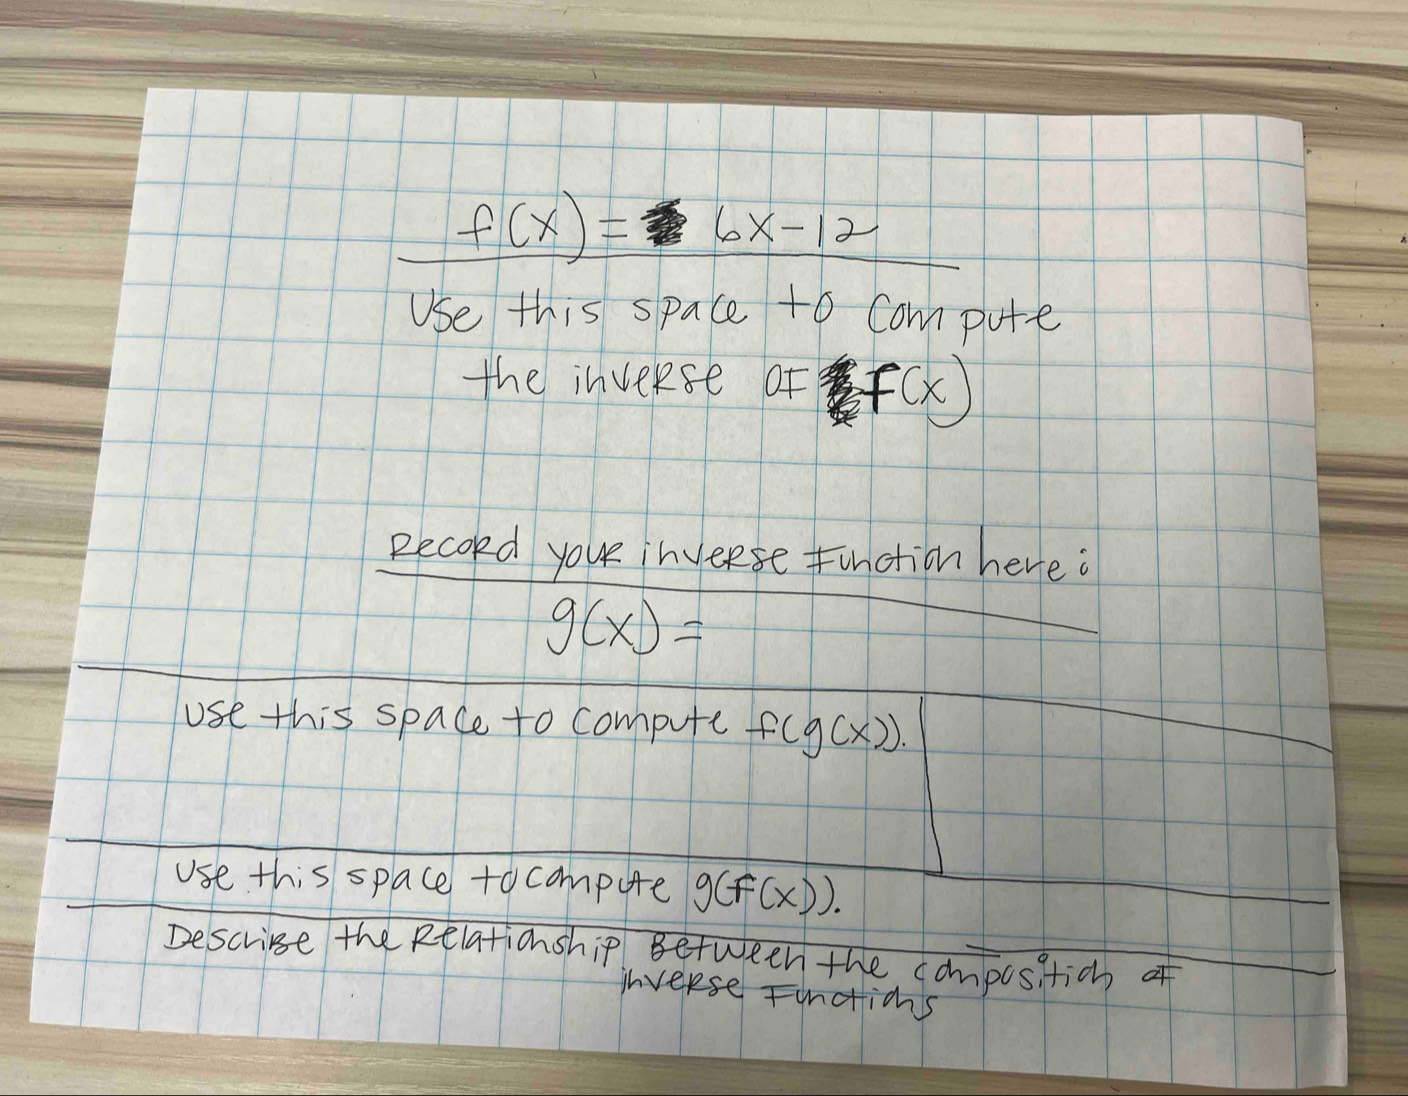 f(x) = 6x-12
Use this space to compute
the inverse of f(x)
Record your inverse function here:
g(x) =
use this space to compute f(g(x)).
use this space to compute g(f(x)).
Describe the Relationship Between the composition of
inverse Functions